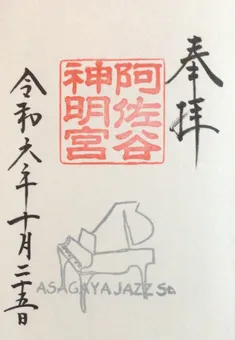 奉拝
阿佐谷
神明宮
令和六年十月二十五日
ASAGAYA JAZZ